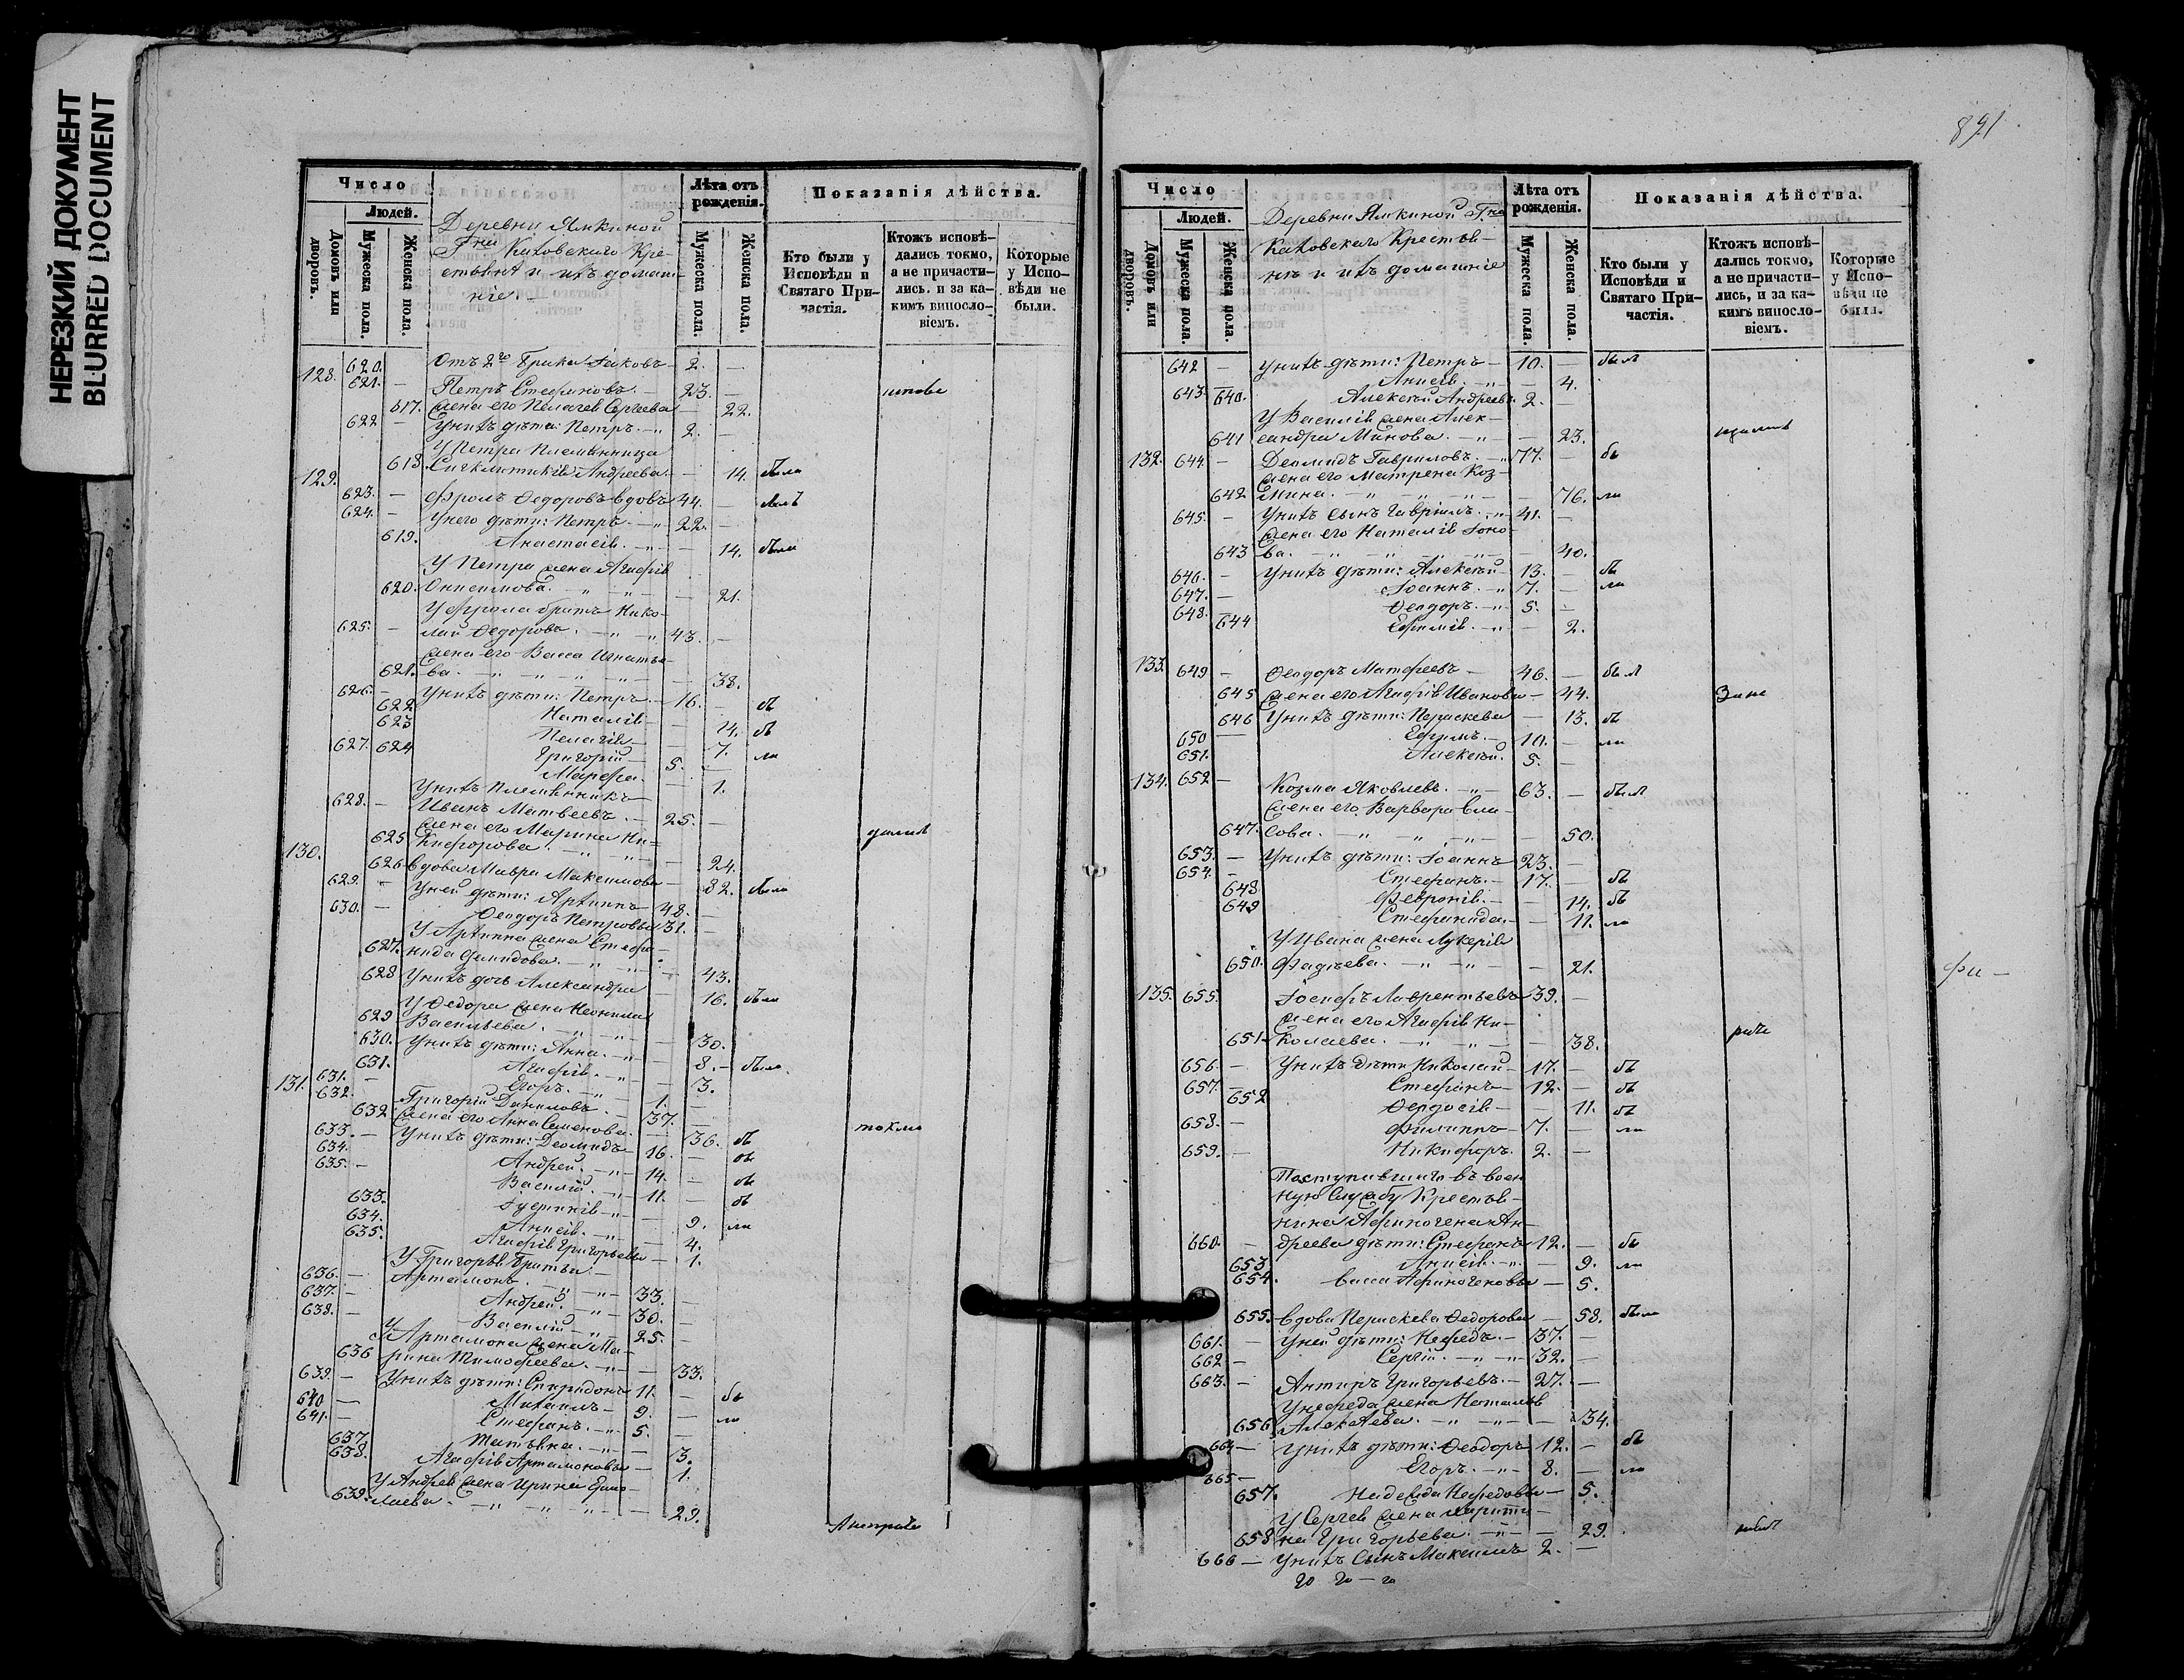 НЕРЕЗКИЙ ДОКУМЕНТ
BLURRED DOCUMENT
Число
Людей.
Домовъ или дворовъ.
Мужеска пола.
Женска пола.
Деревни Ямкиной
Г-на Каховскаго Кре-
стьяне и ихъ домаш-
ніе. —
Лѣта отъ рожденія.
Мужеска пола.
Женска пола.
Показанія дѣйства.
Кто были у Исповѣди и Святаго При-частія.
Ктожъ исповѣ-дались токмо, а не причасти-лись. и за ка-кимъ винослo-віемъ.
Которые у Испо-вѣди не были.
620. Отъ 2го брака Іаковъ — 2. —
128. 621. — Петръ Стефановъ. — 23. —
617. Жена его Пелагея Сергеева — 22.
622 — У нихъ дѣти: Петръ. — 2. —
У Петра племянница
618. Сигклитикія Андреева. — 14. была
129. 623. — Фролъ Федоровъ вдовъ 44. —
624. — У него дѣти: Петръ. — 22. —
619. Анастасія. — — 14. была
У Петра жена Агафія
620. Онисимова. — — 21.
У Фрола братъ Нико-
625. — лай Федоровъ. — 43. —
Жена его Васса Игнатье-
621. ва. — — 38.
626. — У нихъ дѣти: Петръ. — 16. — бы
622 Наталія — — 14. бы
623 Пелагія — — 7. ли
627. 624 Григорій — 5. —
Марфа. — 1.
У нихъ племянникъ
628. — Иванъ Матвеевъ. — 25. —
Жена его Марина Ни-
625 кифорова. — — 24.
130. 626 Вдова Мавра Максимова — 82. была
629. — У ней дѣти: Архиппъ — 48. —
630. — Феодоръ Петровы 31. —
У Архиппа жена Стефа-
627. нида Демидова. — — 43.
628 У нихъ дочь Александра — 16. была
У Федора жена Неонила
629 Васильева. — — 30.
630. У нихъ дѣти: Анна. — — 8. была.
631. Агафія. — — 3.
631. — Егоръ. — 1. —
131. 632. Григорій Даниловъ. — 37. —
632 Жена его Анна Семенова. — 36.
633. — У нихъ дѣти: Деомидъ — 16. — бы
634. Андрей. — 14. — бы
635. — Василій. — 11. — бы
633. Іустинія — — 9. ли
634. Анисія. — — 4.
635. Агафія Григорьевы — 1.
У Григорья братья —
636. — Артамонъ. — 33. —
637. — Андрей. — 30. —
638. — Василій — 25. —
У Артамона жена Ма-
636 рина Тимофеева. — — 33.
639. — У нихъ дѣти: Спиридонъ 11. — бы
640 — Михаилъ — 9. — ли
641. — Стефанъ. — 5. —
637. Татьяна. — — 3.
638. Агафія Артамоновы — 1.
У Андрея жена Ирина Ермо-
639. лаева. — — 29.
891
Число
Людей.
Домовъ или дворовъ.
Мужеска пола.
Женска пола.
Деревни Ямкиной Г-на
Каховскаго Крестья-
не и ихъ домашніе
Лѣта отъ рожденія.
Мужеска пола.
Женска пола.
Показанія дѣйства.
Кто были у Исповѣди и Святаго При-частія.
Ктожъ исповѣ-дались токмо, а не причасти-лись, и за ка-кимъ винослo-віемъ.
Которые у Испо-вѣди не были.
642 — У нихъ дѣти: Петръ — 10. — был
640. Анисія. — — 4.
643. — Алексѣй Андреевы 2. —
У Василія жена Алек-
641 сандра Минова. — — 23.
132. 644. — Деомидъ Гавриловъ. — 77. — бы
Жена его Матрена Коз-
642 мина. — — 76. ли
645. — У нихъ сынъ Гавріилъ. — 41. —
Жена его Наталія Іоно-
643 ва. — — 40.
646. — У нихъ дѣти: Алексѣй — 13. — бы
647. — Іоаннъ. — 7. — ли
648. — Феодоръ. — 5. —
644 Ефимія. — — 2.
133. 649 — Феодоръ Матфеевъ — 46. — был
645 Жена его Агафія Иванова — 44.
646 У нихъ дѣти: Параскева — 13. бы
650 — Ефимъ. — 10. — ли
651. Алексѣй. 5. —
134. 652 — Козма Яковлевъ. — 63. — был
Жена его Варвара Вла-
647. сова. — — 50.
653. — У нихъ дѣти: Іоаннъ 23. —
654. — Стефанъ. — 17. — бы
648 Февронія. — — 14. бы
649 Стефанида. — 11. ли
У Ивана жена Лукерія
650. Фадѣева. — — 21.
фи —
135. 655. Іосифъ Лаврентьевъ 39. —
Жена его Агафія Ни-
651 колаева. — — 38.
656. — У нихъ дѣти Николай — 17. — бы
657. — Стефанъ — 12. — бы
652 Феодосія — — 11. бы
658. — Филиппъ — 7. — ли
659. — Никифоръ. 2. —
Поступившаго въ воен-
ную службу крестья-
нина Афиногена Ан-
660. — дреева дѣти: Стефанъ 12. — бы
653 Анисія. — — 9. ли
654. Васса Афиногеновы — 5.
655. Вдова Параскева Федорова — 58. была
661. — У ней дѣти: Нефедъ. — 37. —
662 — Сергій. — 32. —
663. — Антипъ Григорьевъ. — 27. —
У Нефеда жена Наталья
656 Алексѣева. — — 34.
664 — У нихъ дѣти: Феодоръ 12. — бы
665 — Егоръ. — 8. — ли
657. Надежда Нефедовы — 5.
У Сергея жена Харити-
658 на Григорьева. — — 29.
666 — У нихъ сынъ Максимъ 2. —